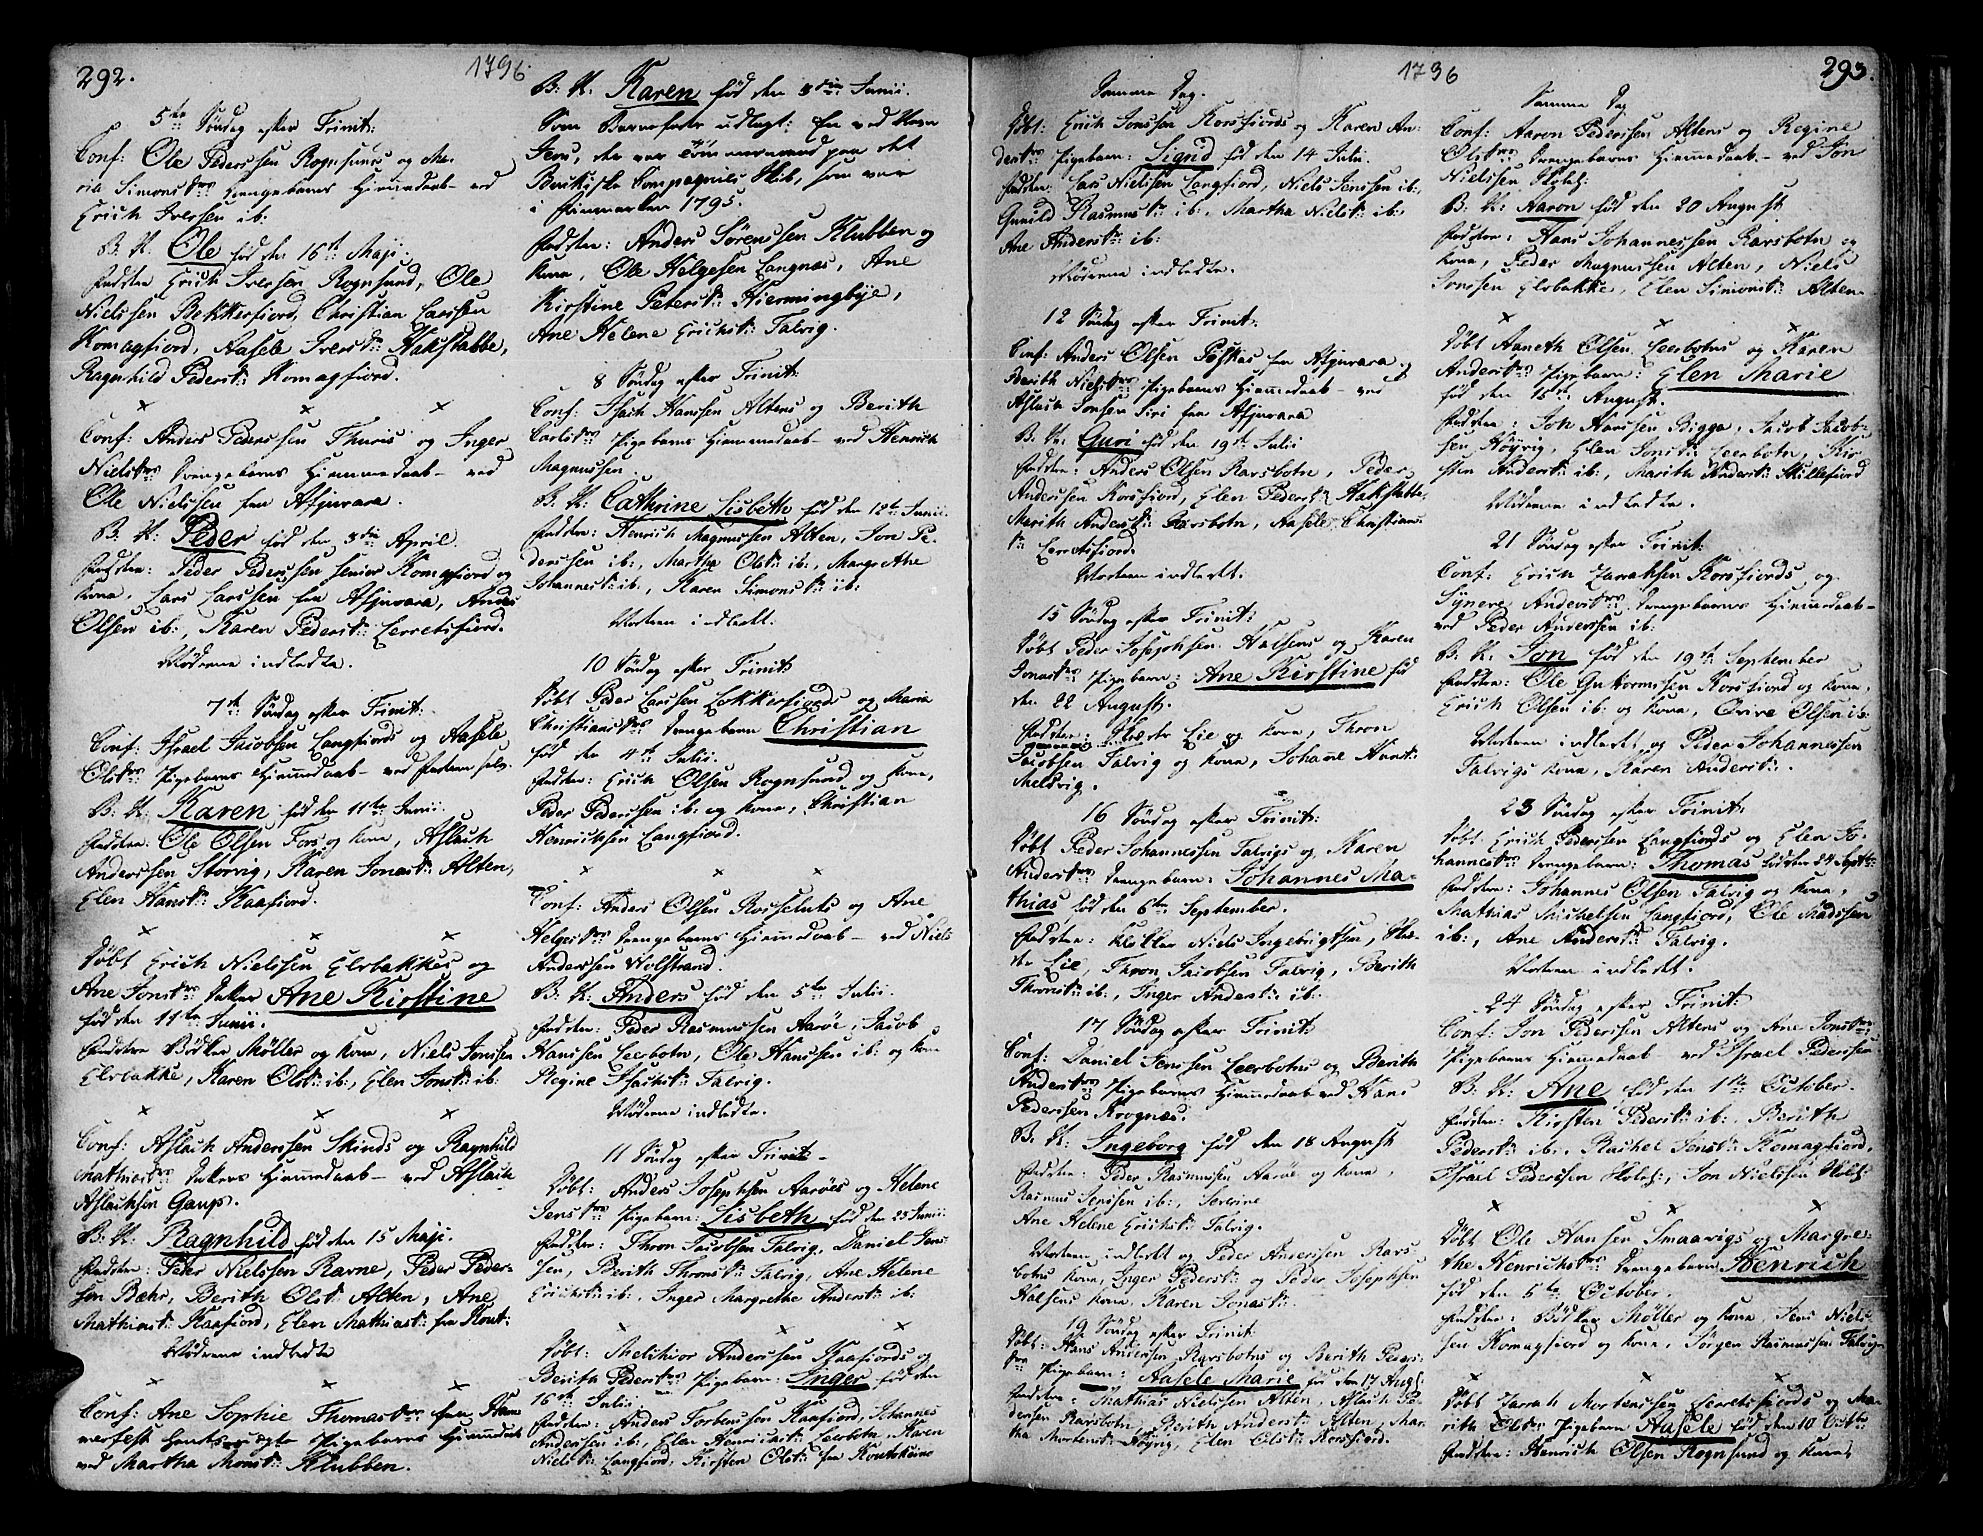 292.
1796.
5te Søndag efter Trinit:
Conf: Ole Pederssen Rognsunds og Ma-
ria Simonsdrs Drengebarns Hiemmedaab – ved
Erich Iversen ib:
B: N: Ole fød den 16de Maji.
Faddere Erich Iversen Rognsund, Ole
Nielssen Bekkerfiord, Christian Larssen
Komagfiord, Aasele Iversdr: Hakstabbe,
Ragnhild Pedersdr: Komagfiord.
× × ×
Conf: Anders Pederssen Thuris og Inger
Nielsdrs Drengebarns Hiemmedaab – ved
Ole Nielssen fra Afjuvara.
B: N: Peder fød den 3die April.
Faddere: Peder Pederssen senior Komagfiord og
Kone, Lars Larssen fra Afjuvara, Anders
Olsen ib:, Karen Pedersdr: Lerretsfiord.
Mødrene indledte.
7de Søndag efter Trinit:
Conf: Israel Jacobsen Langfiords og Aasele
Olsdrs Pigebarns Hiemmedaab – ved Faderen selv.
B: N: Karen fød den 11te Junii.
Faddere: Ole Olsen Fors og Kone, Aslach
Anderssen Storvig, Karen Jonasdr: Alten,
Elen Hansdr: Kaafiord.
× × ×
Døbt Erich Nielssen Elvbakkes og
Ane Jonsdrs Datter Ane Kirstine
fød den 11te Junii.
Faddere Bødker Møller og Kone, Niels Jonssen
Elvbakke, Karen Olsdr: ib:, Elen Jonsdr: ib:
× × ×
Conf: Aslach Anderssen Skinds og Ragnhild
Mathisdrs Datters Hiemmedaab – ved Aslach
Aslachsen Gaup.
B: N: Ragnhild fød den 15 Maji.
Faddere: Peter Nielssen Ravne, Peder Peder-
sen Bæhr, Berith Olsdr: Alten, Ane
Mathisdr: Kaafiord, Elen Mathisdr: fra Kout:
Mødrene indledte
× × ×
Conf: Ane Sophie Thomasdrs fra Ham-
merfest Pigebarns Hiemmedaab
ved Martha Monsdr: Klubben.
B: N: Karen fød den 3die Junii.
Som Barnefader udlagt: En ved Navn
Jens, der var Tømmermand paa det
Buckiske Compagnies Skib, som var
i Finmarken 1795.
Faddere: Anders Sørenssen Klubben og
Kone, Ole Helgesen Langnæs, Ane
Kirstine Petersdr: Hiermingbye,
Ane Helene Erichsdr: Talvig.
8 Søndag efter Trinit:
Conf: Isach Hanssen Altens og Berith
Carlsdrs Pigebarns Hiemmedaab – ved Henrich
Magnussen.
B: N: Cathrine Lisbeth fød den 18de Junii.
Faddere: Henrich Magnussen Alten, Jon Pe-
derssen ib:, Martha Olsdr: ib:, Margrethe
Johannesdr: ib:, Karen Simonsdr: ib:
Moderen indledt.
10 Søndag efter Trinit:
Døbt Peder Larssen Lokkerfiords og Maria
Christiansdrs Drengebarn Christian
fød den 4de Julii.
Faddere: Erich Olsen Rognsund og Kone,
Peder Pederssen ib: og Kone, Christian
Henrichsen Langfiord.
× × ×
Conf: Anders Olsen Rosseluts og Ane
Helgesdrs Drengebarns Hiemmedaab – ved Niels
Anderssen Wolstrand.
B: N: Anders fød den 5te Julii.
Faddere: Peder Rasmussen Aarøe, Jacob
Hanssen Leerbotn, Ole Hanssen ib: og Kone
Regine Isachsdr: Talvig.
Mødrene indledte.
11 Søndag efter Trinit –
Døbt: Anders Josephsen Aarøes og Helene
Jensdrs Pigebarn: Lisbeth fød den 25 Junii
Faddere: Thron Jacobsen Talvig, Daniel Jens-
sen, Berith Thronsdr: Talvig, Ane Helene
Erichsdr: ib:, Inger Margrethe Andersdr: ib:
× × ×
Døbt: Melchior Anderssen Kaafiords og
Berith Pedersdrs Pigebarn: Inger fød den
16de Julii.
Faddere: Anders Torbenssen Kaafiord, Johannes
Andersen ib:, Elen Henrichsdr: Leerbotn, Karen
Nielsdr: Langfiord, Kirsten Olsdr: fra Koutokeino
1796
293.
Samme Dag.
Døbt: Erich Jonssen Korsfiords og Karen An-
dersdrs Pigebarn: Signd fød den 14 Julii.
Faddere: Lars Nielssen Langfiord, Niels Jenssen ib:
Gunild Rasmusdr: ib:, Martha Nielsdr: ib:
Ane Andersdr: ib:
Mødrene indledte.
12 Søndag efter Trinit:
Conf: Anders Olsen fra Afjuvara og
Berith Nielsdrs Pigebarns Hiemmedaab – ved
Aslach Jonsen Siri fra Afjuvara
B: N: Guri fød den 19de Julii
Faddere: Anders Olsen Rarsbotn, Peder
Anderssen Korsfiord, Elen Pedersdr: Hakstabbe
Marith Andersdr: Rarsbotn, Aasele Christians-
dr: Lerretsfiord.
Moderen indledt.
15 Søndag efter Trinit:
Døbt Peder Josephsen Halsens og Karen
Jonasdrs Pigebarn: Ane Kirstine fød
den 22 August.
Faddere: Lie og Kone, Thron
Jacobsen Talvig og Kone, Johane Hansdr:
Melsvig.
16 Søndag efter Trinit:
Døbt Peder Johannessen Talvigs og Karen
Andersdrs Drengebarn: Johannes Ma-
thias fød den 6te September.
Faddere: Klokker Niels Ingebrigtsen,
Lie, Thron Jacobsen Talvig, Berith
Thronsdr: ib:, Inger Andersdr: ib:
17 Søndag efter Trinit:
Conf: Daniel Jenssen Leerbotns og Berith
Andersdrs Pigebarns Hiemmedaab ved Hans
Pederssen Kroognæs.
B: N: Ingeborg fød den 18 August
Faddere: Peder Rasmussen Aarøe og Kone,
Rasmus Jenssen ib:, Severine
Ane Helene Erichsdr: Talvig.
Moderen indledt og Peder Anderssen Rars-
botns Kone, Inger Pedersdr: og Peder Josephsen
Halsens Kone, Karen Jonasdr:
19 Søndag efter Trinit:
Døbt: Hans Andersen Rarsbotns og Berith Peders-
drs Pigebarn: Aasele Marie fød den 17 Aug:
Faddere: Mathias Nielssen Alten, Aslach Pe-
dersen Rarsbotn, Berith Andersdr: Alten, Mar-
tha Mortensdr: Køyrig, Elen Olsdr: Korsfiord.
Samme Dag
Conf: Aaron Pederssen Altens og Regine
Olsdrs Drengebarns Hiemmedaab – ved Jon
Nielssen Skoleh:
B: N: Aaron fød den 20 August
Faddere: Hans Johannessen Rarsbotn og
Kone, Peder Magnussen Alten, Niels
Jonssen Elvbakke, Elen Simonsdr: Alten.
× × ×
Døbt Aaneth Olsen Leerbotns og Karen
Andersdrs Pigebarn: Elen Marie
fød den 15de August.
Faddere: Joh Hanssen Bigga, Jacob Jacob-
sen Køyrig, Elen Jonsdr: Leerbotn, Kir-
sten Andersdr: ib:, Marith Andersdr: Skillefiord
Mødrene indledte.
21 Søndag efter Trinit:
Conf: Erich Zarachsen Korsfiords og
Syneve Andersdrs Drengebarns Hiemmedaab –
ved Peder Anderssen ib:
B: N: Jon fød den 19de September
Faddere: Ole Guttormssen Korsfiord og Kone,
Erich Olsen ib: og Kone, Qvive Olsen ib:
Moderen indledt og Peder Johannessen
Talvigs Kone, Karen Andersdr:
23 Søndag efter Trinit:
Døbt Erich Pederssen Langfiords og Elen Jo-
hannesdrs Drengebarn: Thomas fød den 24 Septbr
Faddere: Johannes Olsen Talvig og Kone,
Mathias Michelsen Langfiord, Ole Madssen
ib:, Ane Andersdr: Talvig.
Moderen indledt.
24 Søndag efter Trinit:
Conf: Jon Pederssen Altens og Ane Jonsdrs
Pigebarns Hiemmedaab – ved Israel Pederssen
B: N: Ane fød den 1te October.
Faddere: Kirsten Pedersdr: ib:, Berith
Pedersdr: ib:, Rachel Jensdr: Komagfiord,
Israel Pederssen Skoleh:, Jon Nielssen Skoleh:
× × ×
Døbt Ole Hansen Smaavigs og Margre-
the Henrichsdrs Drengebarn Henrich
fød den 6te October.
Faddere: Bødker Møller og Kone, Jens Niels-
sen Komagfiord og Kone, Jørgen Rasmussen Talvig
× × ×
Døbt Zarach Mortenssen Lerretsfiords og Ma-
rith Olsdrs Pigebarn Aasele fød den 10 Octbr
Faddere: Henrich Olsen Rognsund og Kone,